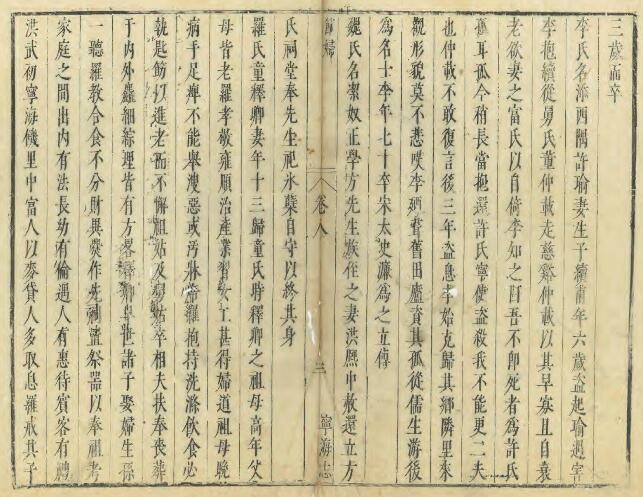 三歲而卒
李氏名㳺西隅許瑜妻生子續甫年六歲盜起瑜遇害
李抱續從舅氏董仲載走慈谿仲載以其早寡且自衰
老欲妻之富氏以自倚李知之曰吾不即死者為許氏
孤耳孤今稍長當抱還許氏寧使盜殺我不能更二夫
也仲載不敢復言後三年盜息李始克歸其鄉隣里來
觀形貌莫不悲嘆李廼葺舊田廬資其孤從儒生游後
為名士李年七十卒宋太史濂為之立傳
魏氏名潔奴正學方先生族侄之妻洪熙中赦還立方
氏祠堂奉先生祀氷蘗自守以終其身
羅氏童釋卿妻年十三歸童氏時釋卿之祖母高年父
母皆老羅孝敬雍順治產業習女工甚得婦道祖母晚
病手足痺不能舉溲惡或汚牀第羅抱持洗滌飲食必
執匙筯以進老而不懈祖姑及舅姑卒相夫扶奉喪葬
于內外麤細綜理皆有方畧釋卿早世諸子娶婦生孫
一聽羅教合食不分財異爨作先祠置祭器以奉祖考
家庭之間出內有法長幼有倫遇人有惠待賓客有禮
洪武初寧海饑里中富人以麥貸人多取息羅戒其子
節婦
卷八
三
寧海志